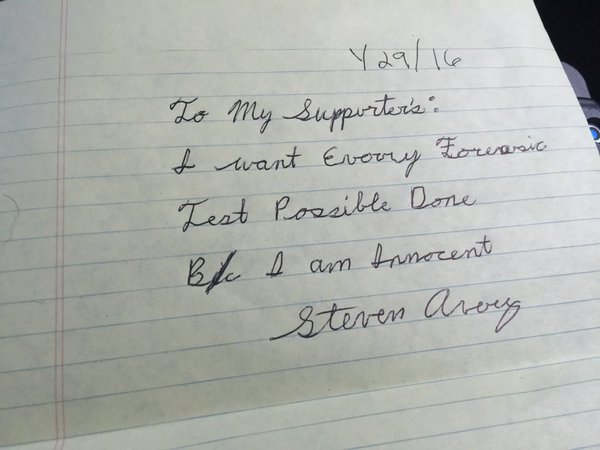 4/29/16
To My Supporter's:
I want Every Forensic
Test Possible Done
B/c I am Innocent
Steven Avery